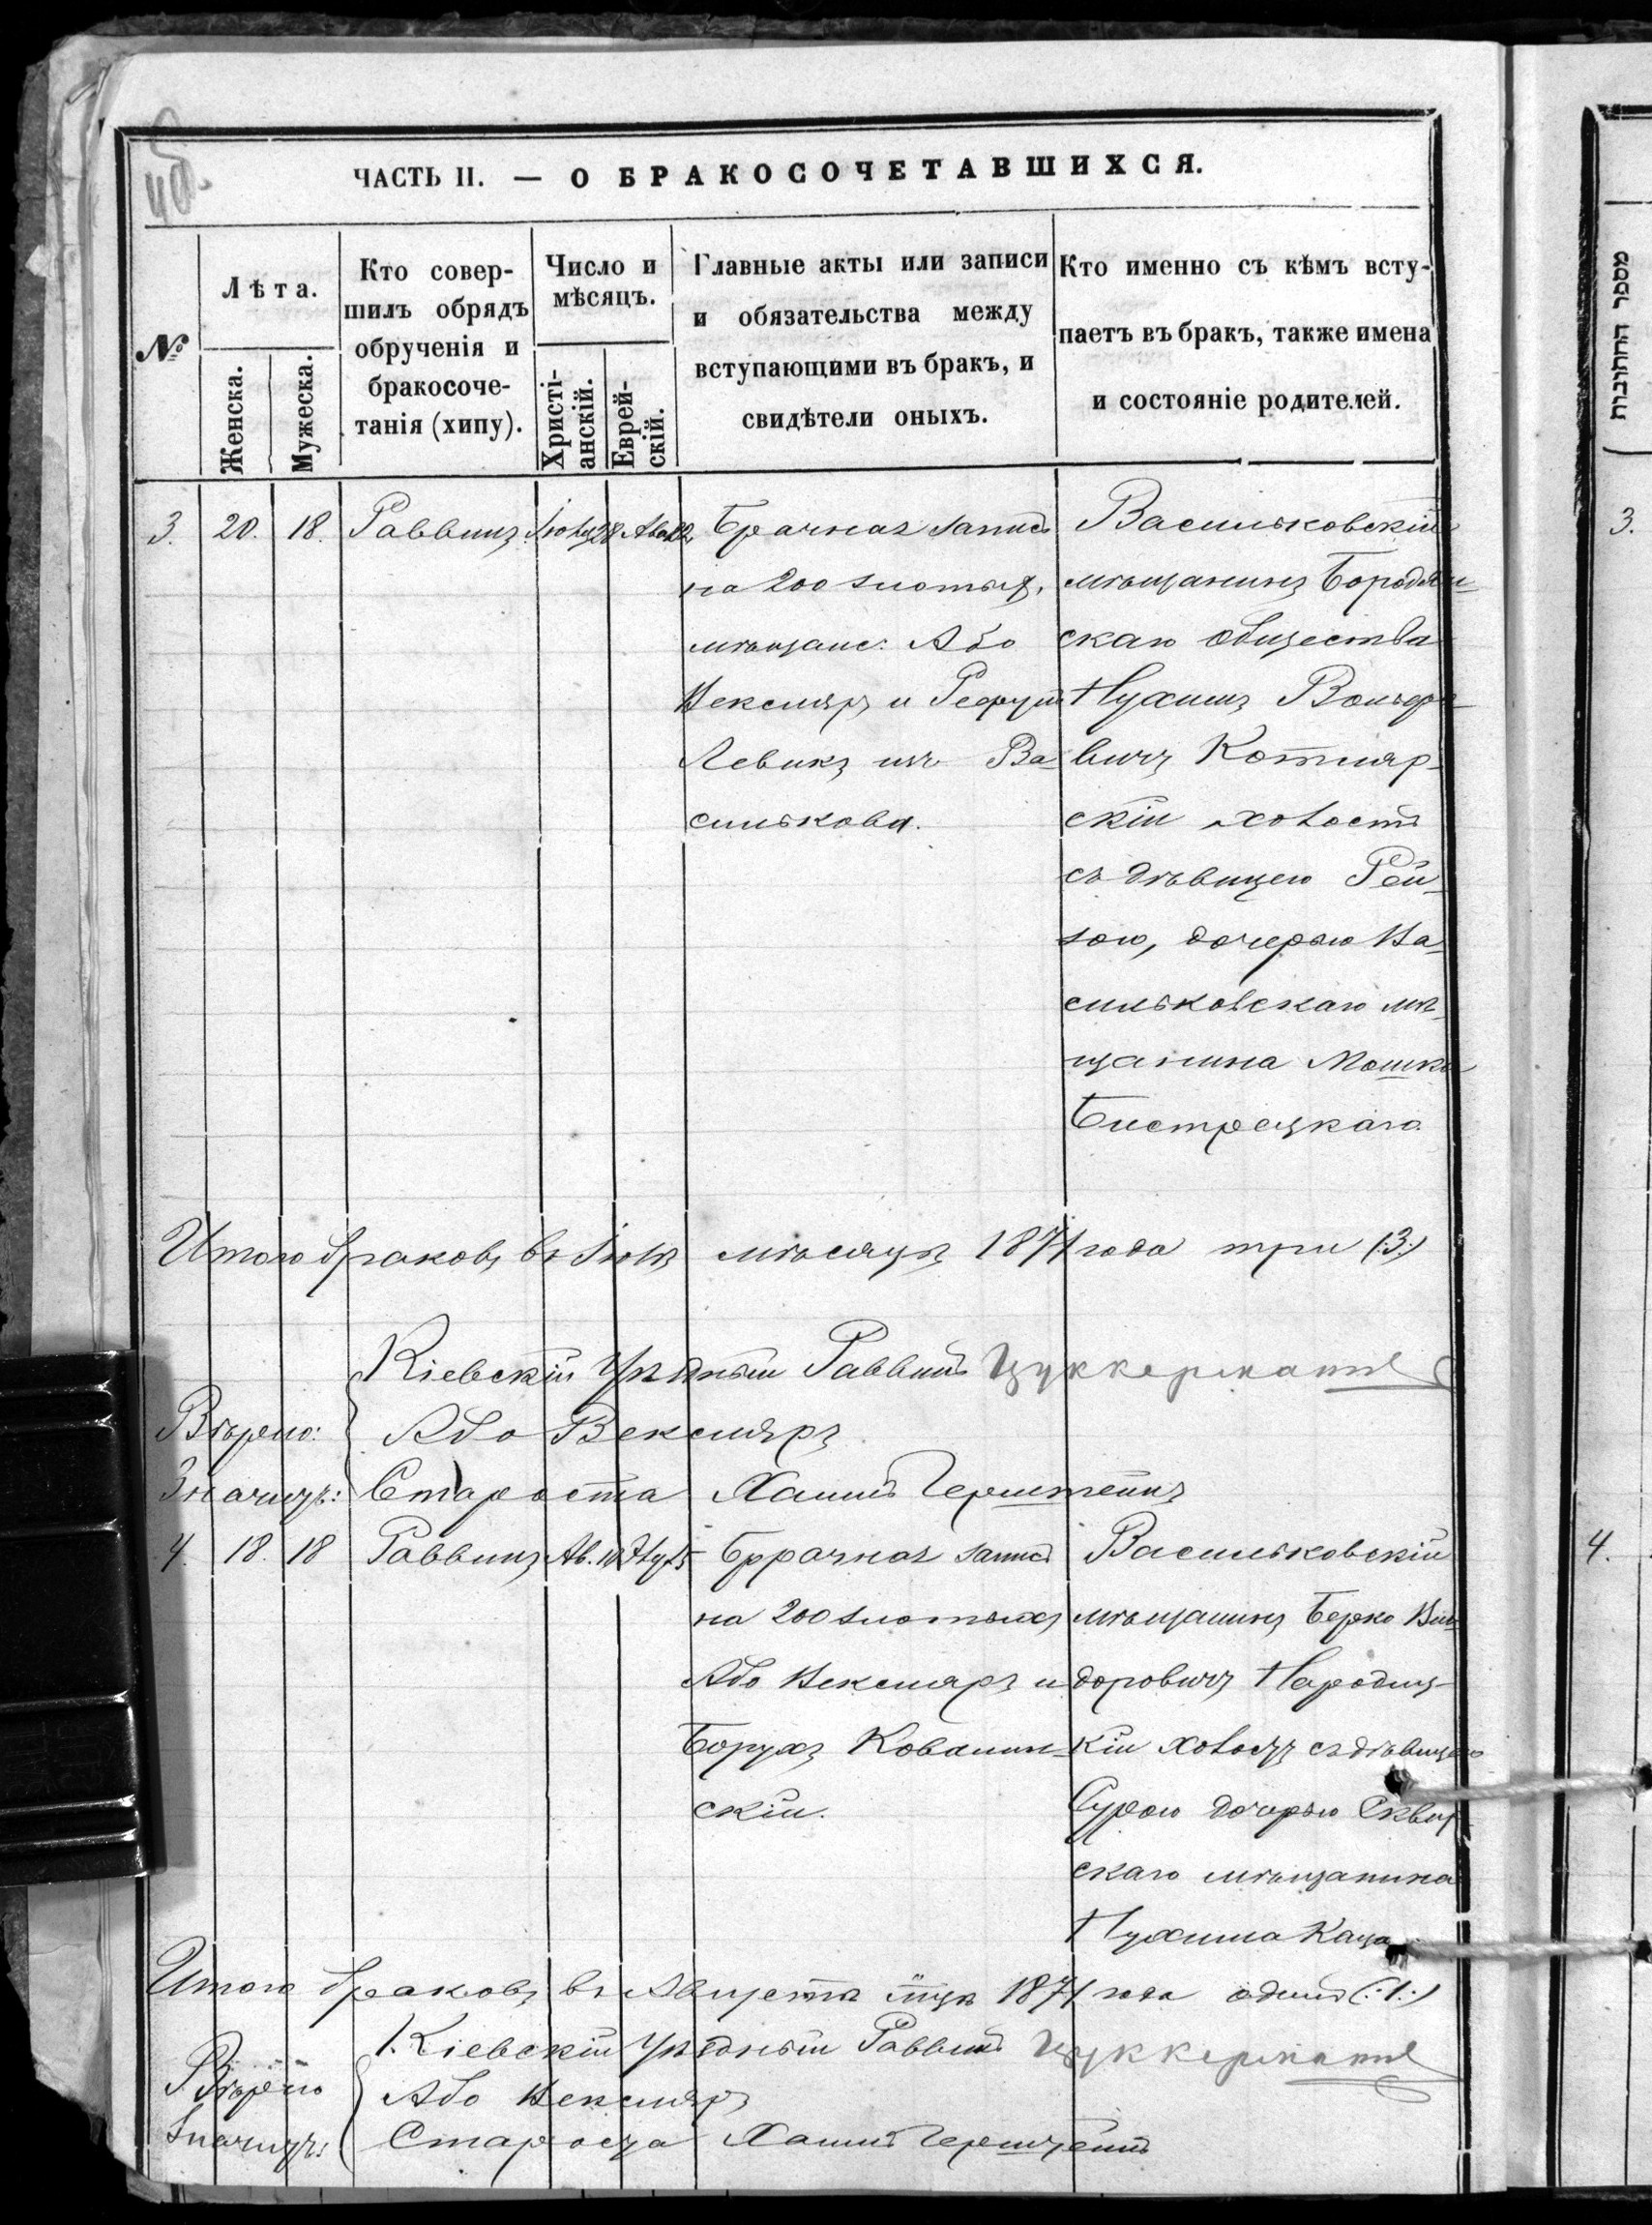 ЧАСТЬ II. — О БРАКОСОЧЕТАВШИХСЯ.
№
Лѣта.
Женска.
Мужеска.
Кто совер-
шилъ обрядъ
обрученія и
бракосоче-
танія (хипу).
Число и
мѣсяцъ.
Христі-
анскій.
Еврей-
скій.
Главные акты или записи
и обязательства между
вступающими въ бракъ, и
свидѣтели оныхъ.
Кто именно съ кѣмъ всту-
паетъ въ бракъ, также имена
и состояніе родителей.
3. 20. 18. Раввинъ. Іюль 28 Ава
Брачная запись
на 200 злотыхъ,
мѣщане: Або
Вексляръ и
Левикъ изъ Ва-
силькова.
Васильковскій
мѣщанинъ Бородян-
скаго общества
Нухимъ Вольфо-
вичъ Котляр-
скій холостъ
съ дѣвицею Рей-
зою, дочерью Ва-
сильковскаго мѣ-
щанина Мошка
Бистрецкаго.
Итого браковъ въ Іюлѣ мѣсяцѣ 1871 года три (:3:)
Кіевскій Уѣздный Раввинъ Цуккерманъ
Вѣрно: Або Вексляръ
Староста Хаимъ Герштейнъ
4. 18. 18 Раввинъ Ав.
Бррачная запись
на 200 злотыхъ
Або Вексляръ и
Борухъ Ковалин-
скій.
Васильковскій
мѣщанинъ Берко
доровичъ Народиц-
кій холостъ съ дѣвицею
Сурою дочерью Сквир-
скаго мѣщанина
Нухима Каца
Итого браковъ въ Августѣ м̃цѣ 1871 года одинъ (:1:)
Кіевскій Уѣздный Раввинъ Цуккерманъ
Вѣрно Або Вексляръ
Староста Хаимъ Герштейнъ
מספר החתונות
3.
4.